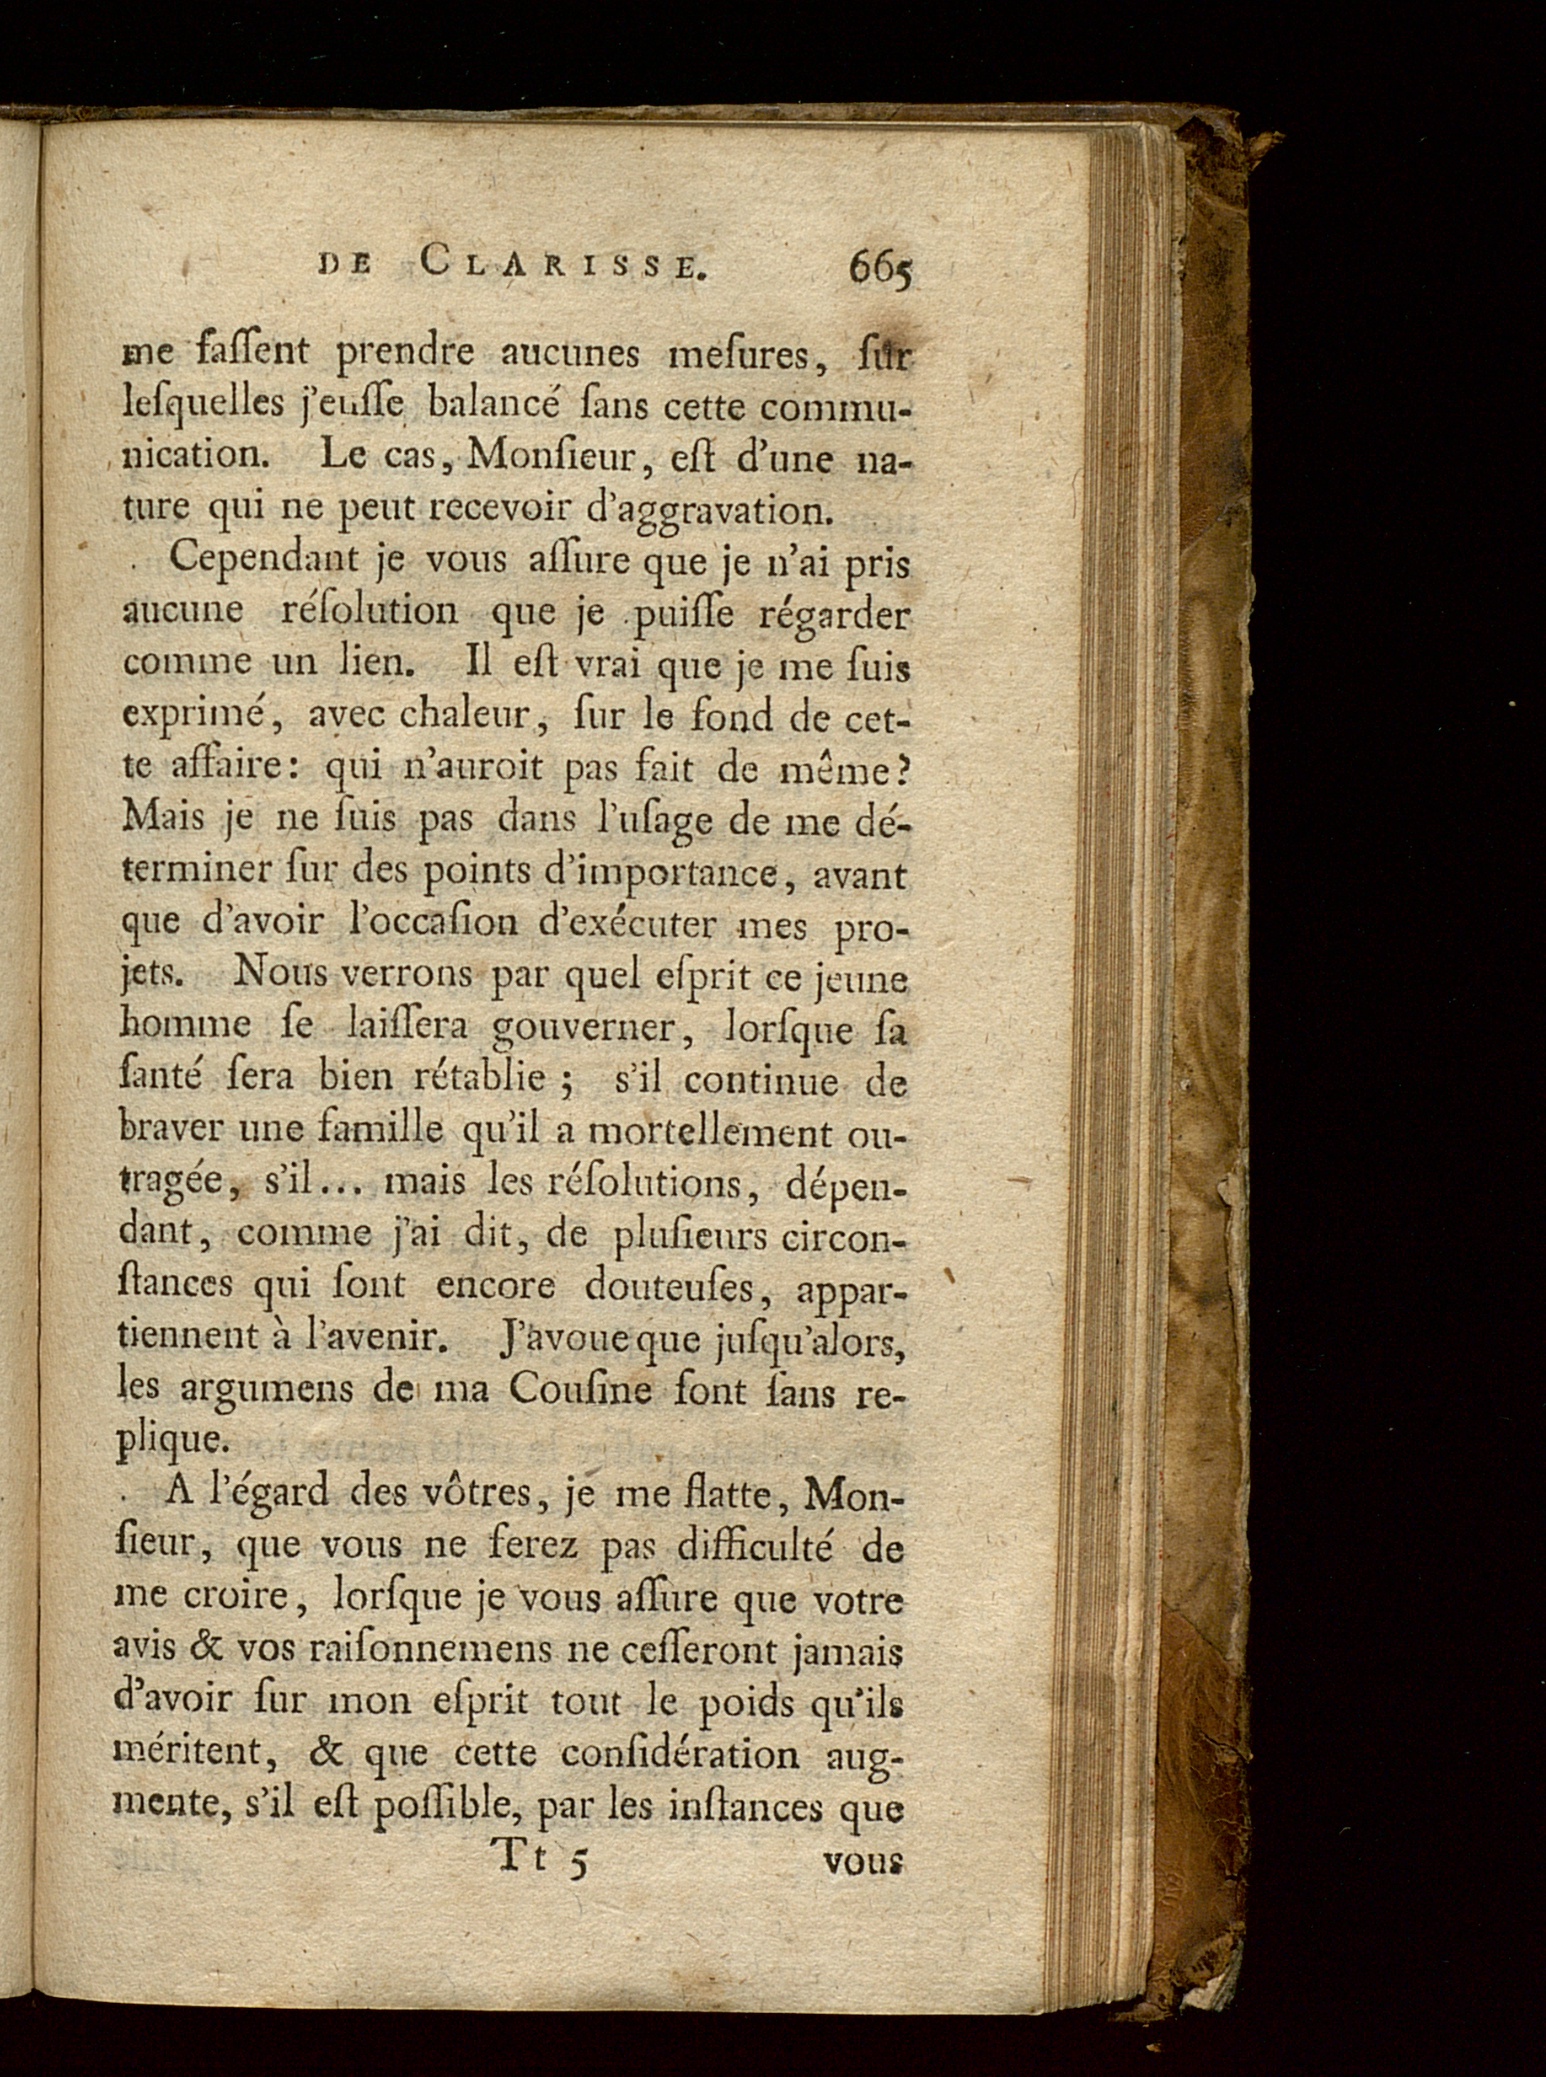 DE CLARISSE. 665
me faſſent prendre aucunes meſures, ſur
leſquelles j'euſſe balancé ſans cette commu-
nication. Le cas, Monſieur, eſt d'une na-
ture qui ne peut recevoir d'aggravation.
Cependant je vous aſſure que je n'ai pris
aucune réſolution que je puiſſe régarder
comme un lien. Il eſt vrai que je me ſuis
exprimé, avec chaleur, ſur le fond de cet-
te affaire: qui n'auroit pas fait de même?
Mais je ne ſuis pas dans l'uſage de me dé-
terminer ſur des points d'importance, avant
que d'avoir l'occaſion d'exécuter mes pro-
jets. Nous verrons par quel eſprit ce jeune
homme ſe laiſſera gouverner, lorſque ſa
ſanté ſera bien rétablie; s'il continue de
braver une famille qu'il a mortellement ou-
tragée, s'il... mais les réſolutions, dépen-
dant, comme j'ai dit, de pluſieurs circon-
ſtances qui ſont encore douteuſes, appar-
tiennent à l'avenir. J'avoue que juſqu'alors,
les argumens de ma Couſine ſont ſans re-
plique.
A l'égard des vôtres, je me flatte, Mon-
ſieur, que vous ne ferez pas difficulté de
me croire, lorſque je vous aſſure que votre
avis & vos raiſonnemens ne ceſſeront jamais
d'avoir ſur mon eſprit tout le poids qu'ils
méritent, & que cette conſidération aug-
mente, s'il eſt poſſible, par les inſtances que
Tt 5 vous